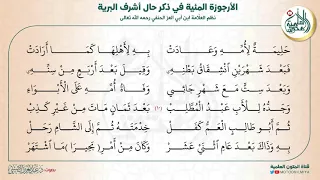 الأرجوزة المئية في ذكر حال أشرف البرية
نظم العلامة ابن أبي العز الحنفي رحمه الله تعالى
حَلِيمَةٌ لِأُمِّهِ وَعَادَتْ بِهِ لِأَهْلِهَا كَمَا أَرَادَتْ
فَبَعْدَ شَهْرَيْنِ انْشِقَاقُ بَطْنِهِ وَقِيلَ بَعْدَ أَرْبَعٍ مِنْ سِنِّهِ
وَبَعْدَ سِتٍّ مَعَ شَهْرٍ جَائِي وَفَاةُ أُمِّهِ عَلَى الْأَبْوَاءِ
وَجَدُّهُ لِلْأَبِ عَبْدُ الْمُطَّلِبْ (١٠) بَعْدَ ثَمَانٍ مَاتَ مِنْ غَيْرِ كَذِبْ
ثُمَّ أَبُو طَالِبٍ الْعَمُّ كَفَلْ خِدْمَتَهُ ثُمَّ إِلَى الشَّامِ رَحَلْ
بِهِ وَذَاكَ بَعْدَ عَامٍ اثْنَيْ عَشَرْ وَكَانَ مِنْ أَمْرِ (بَحِيرَا) مَا اشْتَهَرْ
قناة المتون العلمية